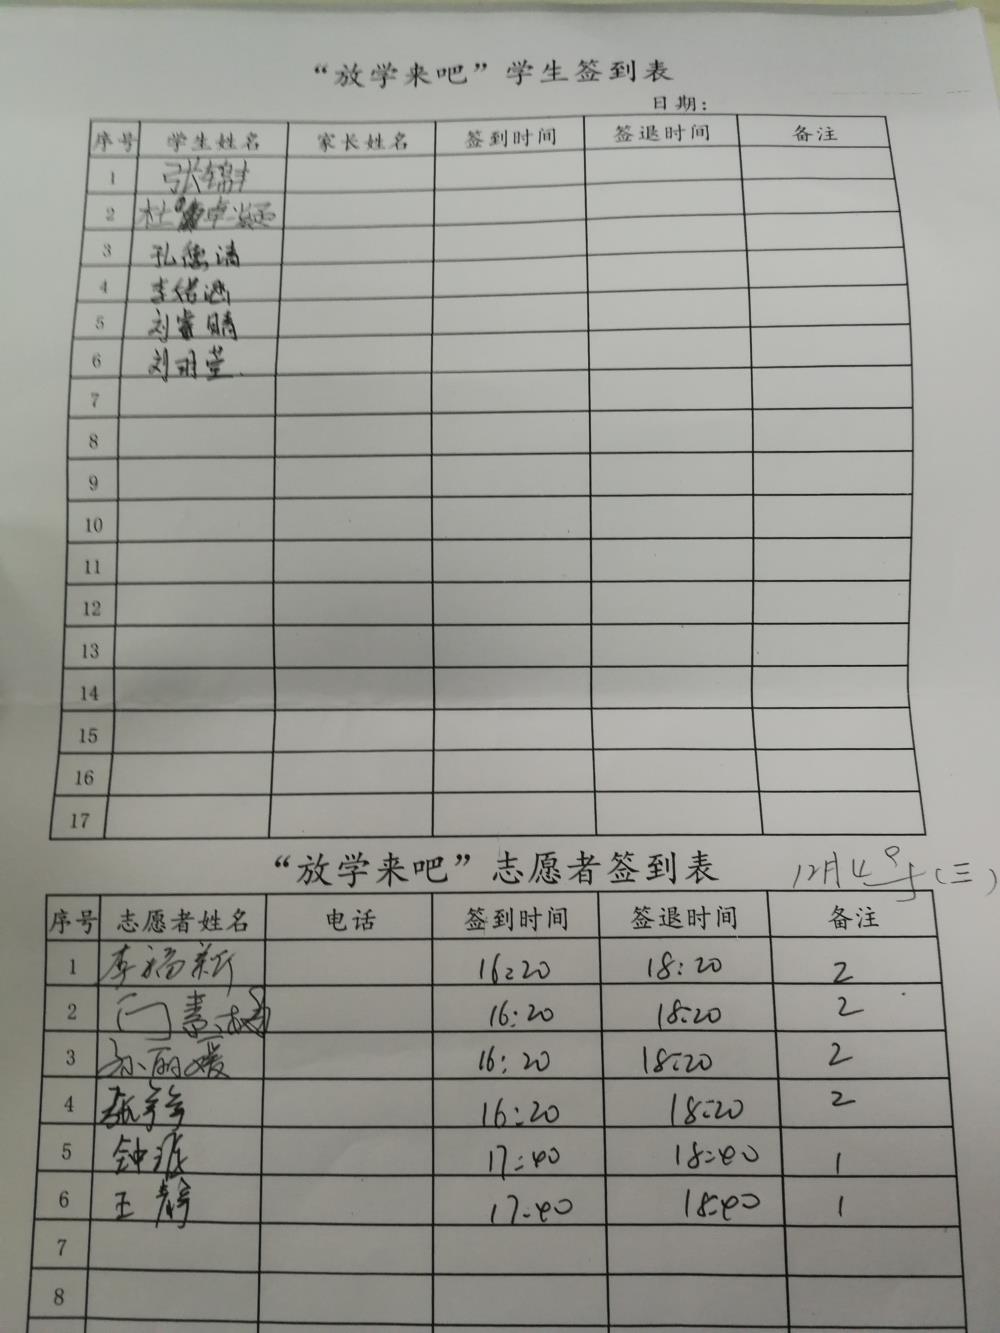 “放学来吧”学生签到表
日期：
序号 学生姓名 家长姓名 签到时间 签退时间 备注
1 张锦
2 杜卓凝
3 孔德清
4 李绪涵
5 刘睿晴
6 刘玥萱
7
8
9
10
11
12
13
14
15
16
17
“放学来吧”志愿者签到表 12月4号(三)
序号 志愿者姓名 电话 签到时间 签退时间 备注
1 李福新 16:20 18:20 2
2 门 16:20 18:20 2
3 孙丽媛 16:20 18:20 2
4 16:20 18:20 2
5 钟 17:40 18:40 1
6 王静 17:40 18:40 1
7
8